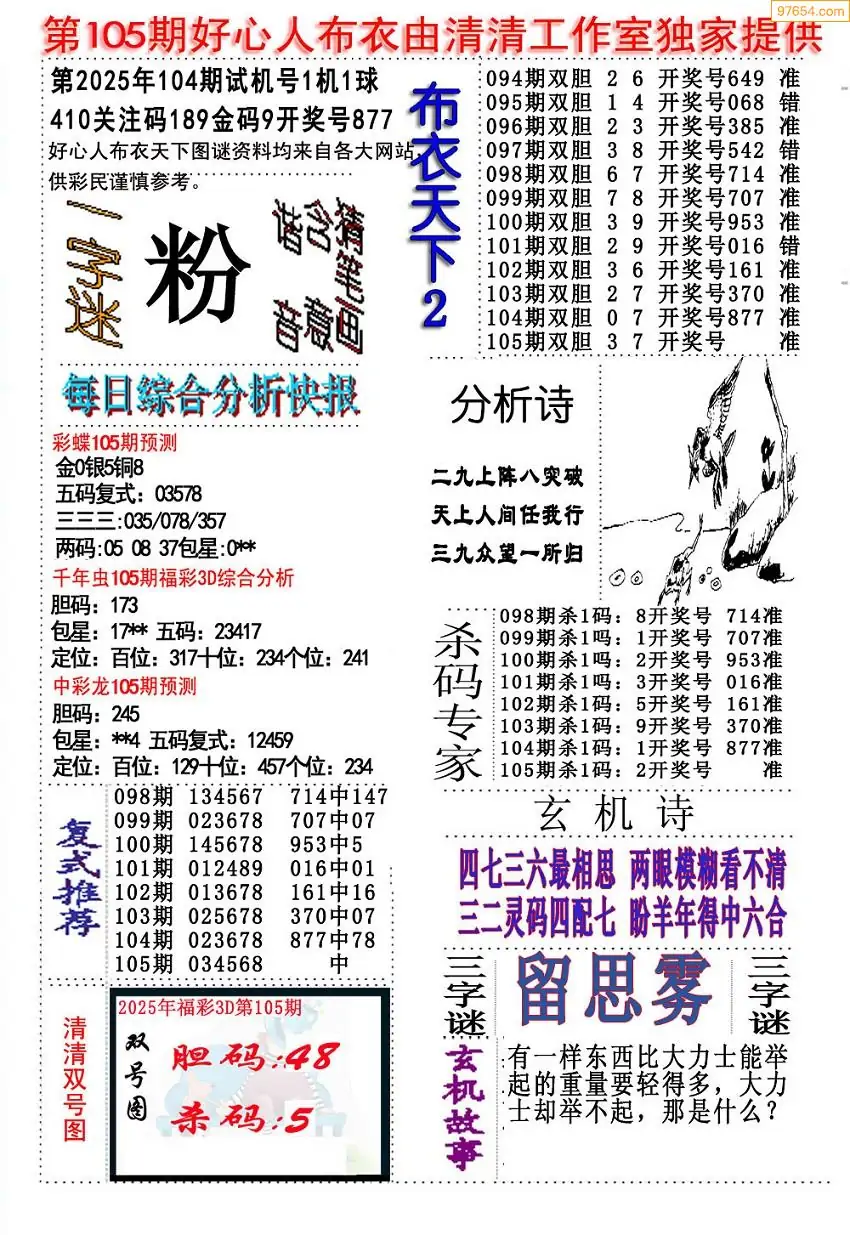 97654.com
第105期好心人布衣由清清工作室独家提供
第2025年104期试机号1机1球
410关注码189金码9开奖号877
好心人布衣天下图谜资料均来自各大网站,
供彩民谨慎参考。
一字迷
粉
谐音
含意
猜笔画
布衣天下2
094期双胆 2 6 开奖号649 准
095期双胆 1 4 开奖号068 错
096期双胆 2 3 开奖号385 准
097期双胆 3 8 开奖号542 错
098期双胆 6 7 开奖号714 准
099期双胆 7 8 开奖号707 准
100期双胆 3 9 开奖号953 准
101期双胆 2 9 开奖号016 错
102期双胆 3 6 开奖号161 准
103期双胆 2 7 开奖号370 准
104期双胆 0 7 开奖号877 准
105期双胆 3 7 开奖号 准
每日综合分析快报
彩蝶105期预测
金0银5铜8
五码复式：03578
三三三:035/078/357
两码:05 08 37包星:0**
千年虫105期福彩3D综合分析
胆码：173
包星：17** 五码：23417
定位：百位：317十位：234个位：241
中彩龙105期预测
胆码：245
包星：**4 五码复式：12459
定位：百位：129十位：457个位：234
分析诗
二九上阵八突破
天上人间任我行
三九众望一所归
杀码专家
098期杀1码：8开奖号 714准
099期杀1吗：1开奖号 707准
100期杀1吗：2开奖号 953准
101期杀1吗：3开奖号 016准
102期杀1码：5开奖号 161准
103期杀1码：9开奖号 370准
104期杀1码：1开奖号 877准
105期杀1码：2开奖号 准
复式推荐
098期 134567 714中147
099期 023678 707中07
100期 145678 953中5
101期 012489 016中01
102期 013678 161中16
103期 025678 370中07
104期 023678 877中78
105期 034568 中
玄机诗
四七三六最相思 两眼模糊看不清
三二灵码四配七 盼羊年得中六合
三字谜
留思雾
三字谜
清清双号图
2025年福彩3D第105期
双号图
胆码:48
杀码:5
玄机故事
有一样东西比大力士能举
起的重量要轻得多，大力
士却举不起，那是什么？